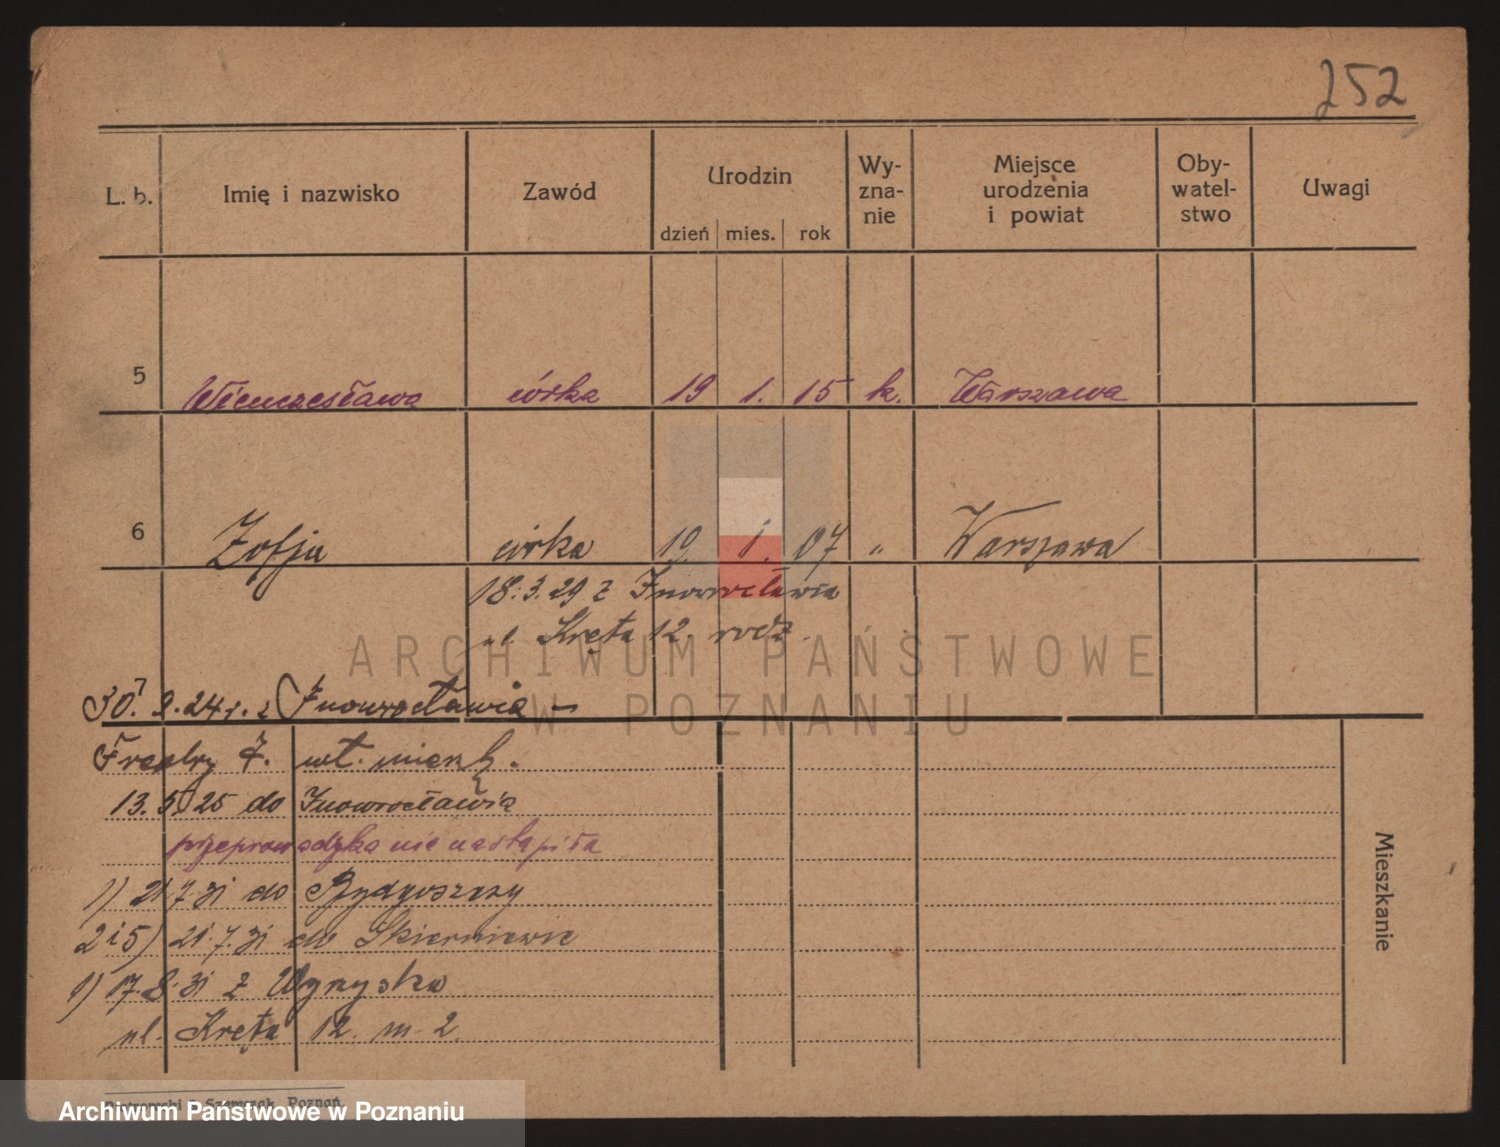 252
L. b. Imię i nazwisko Zawód Urodzin Wy-zna-nie Miejsce urodzenia i powiat Oby-watel-stwo Uwagi
dzień mies. rok
5 Wieńczesława córka 19 1. 15 k. Warszawa
6 Zofja córka 19. 1. 07 " Warszawa
18.3.29 z Inowrocławia
ul. Kręta 12. rodz.
30. 9. 24 r. z Inowrocławia
Fredry 7. wł. mieszk.
13. 5. 25 do Inowrocławia
przeprowadzka nie nastąpiła
1) 21 7. 31 do Bydgoszczy
2 i 5) 21. 7. 31 do Skierniewic
1) 17. 8. 31 z
ul. Kręta 12. m. 2.
Mieszkanie
Piotrowski i Szewczak, Poznań
ARCHIWUM PAŃSTWOWE
W POZNANIU
Archiwum Państwowe w Poznaniu